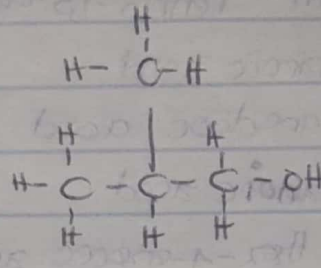 H
H - C - H
H H
H - C - C - C - OH
H H H